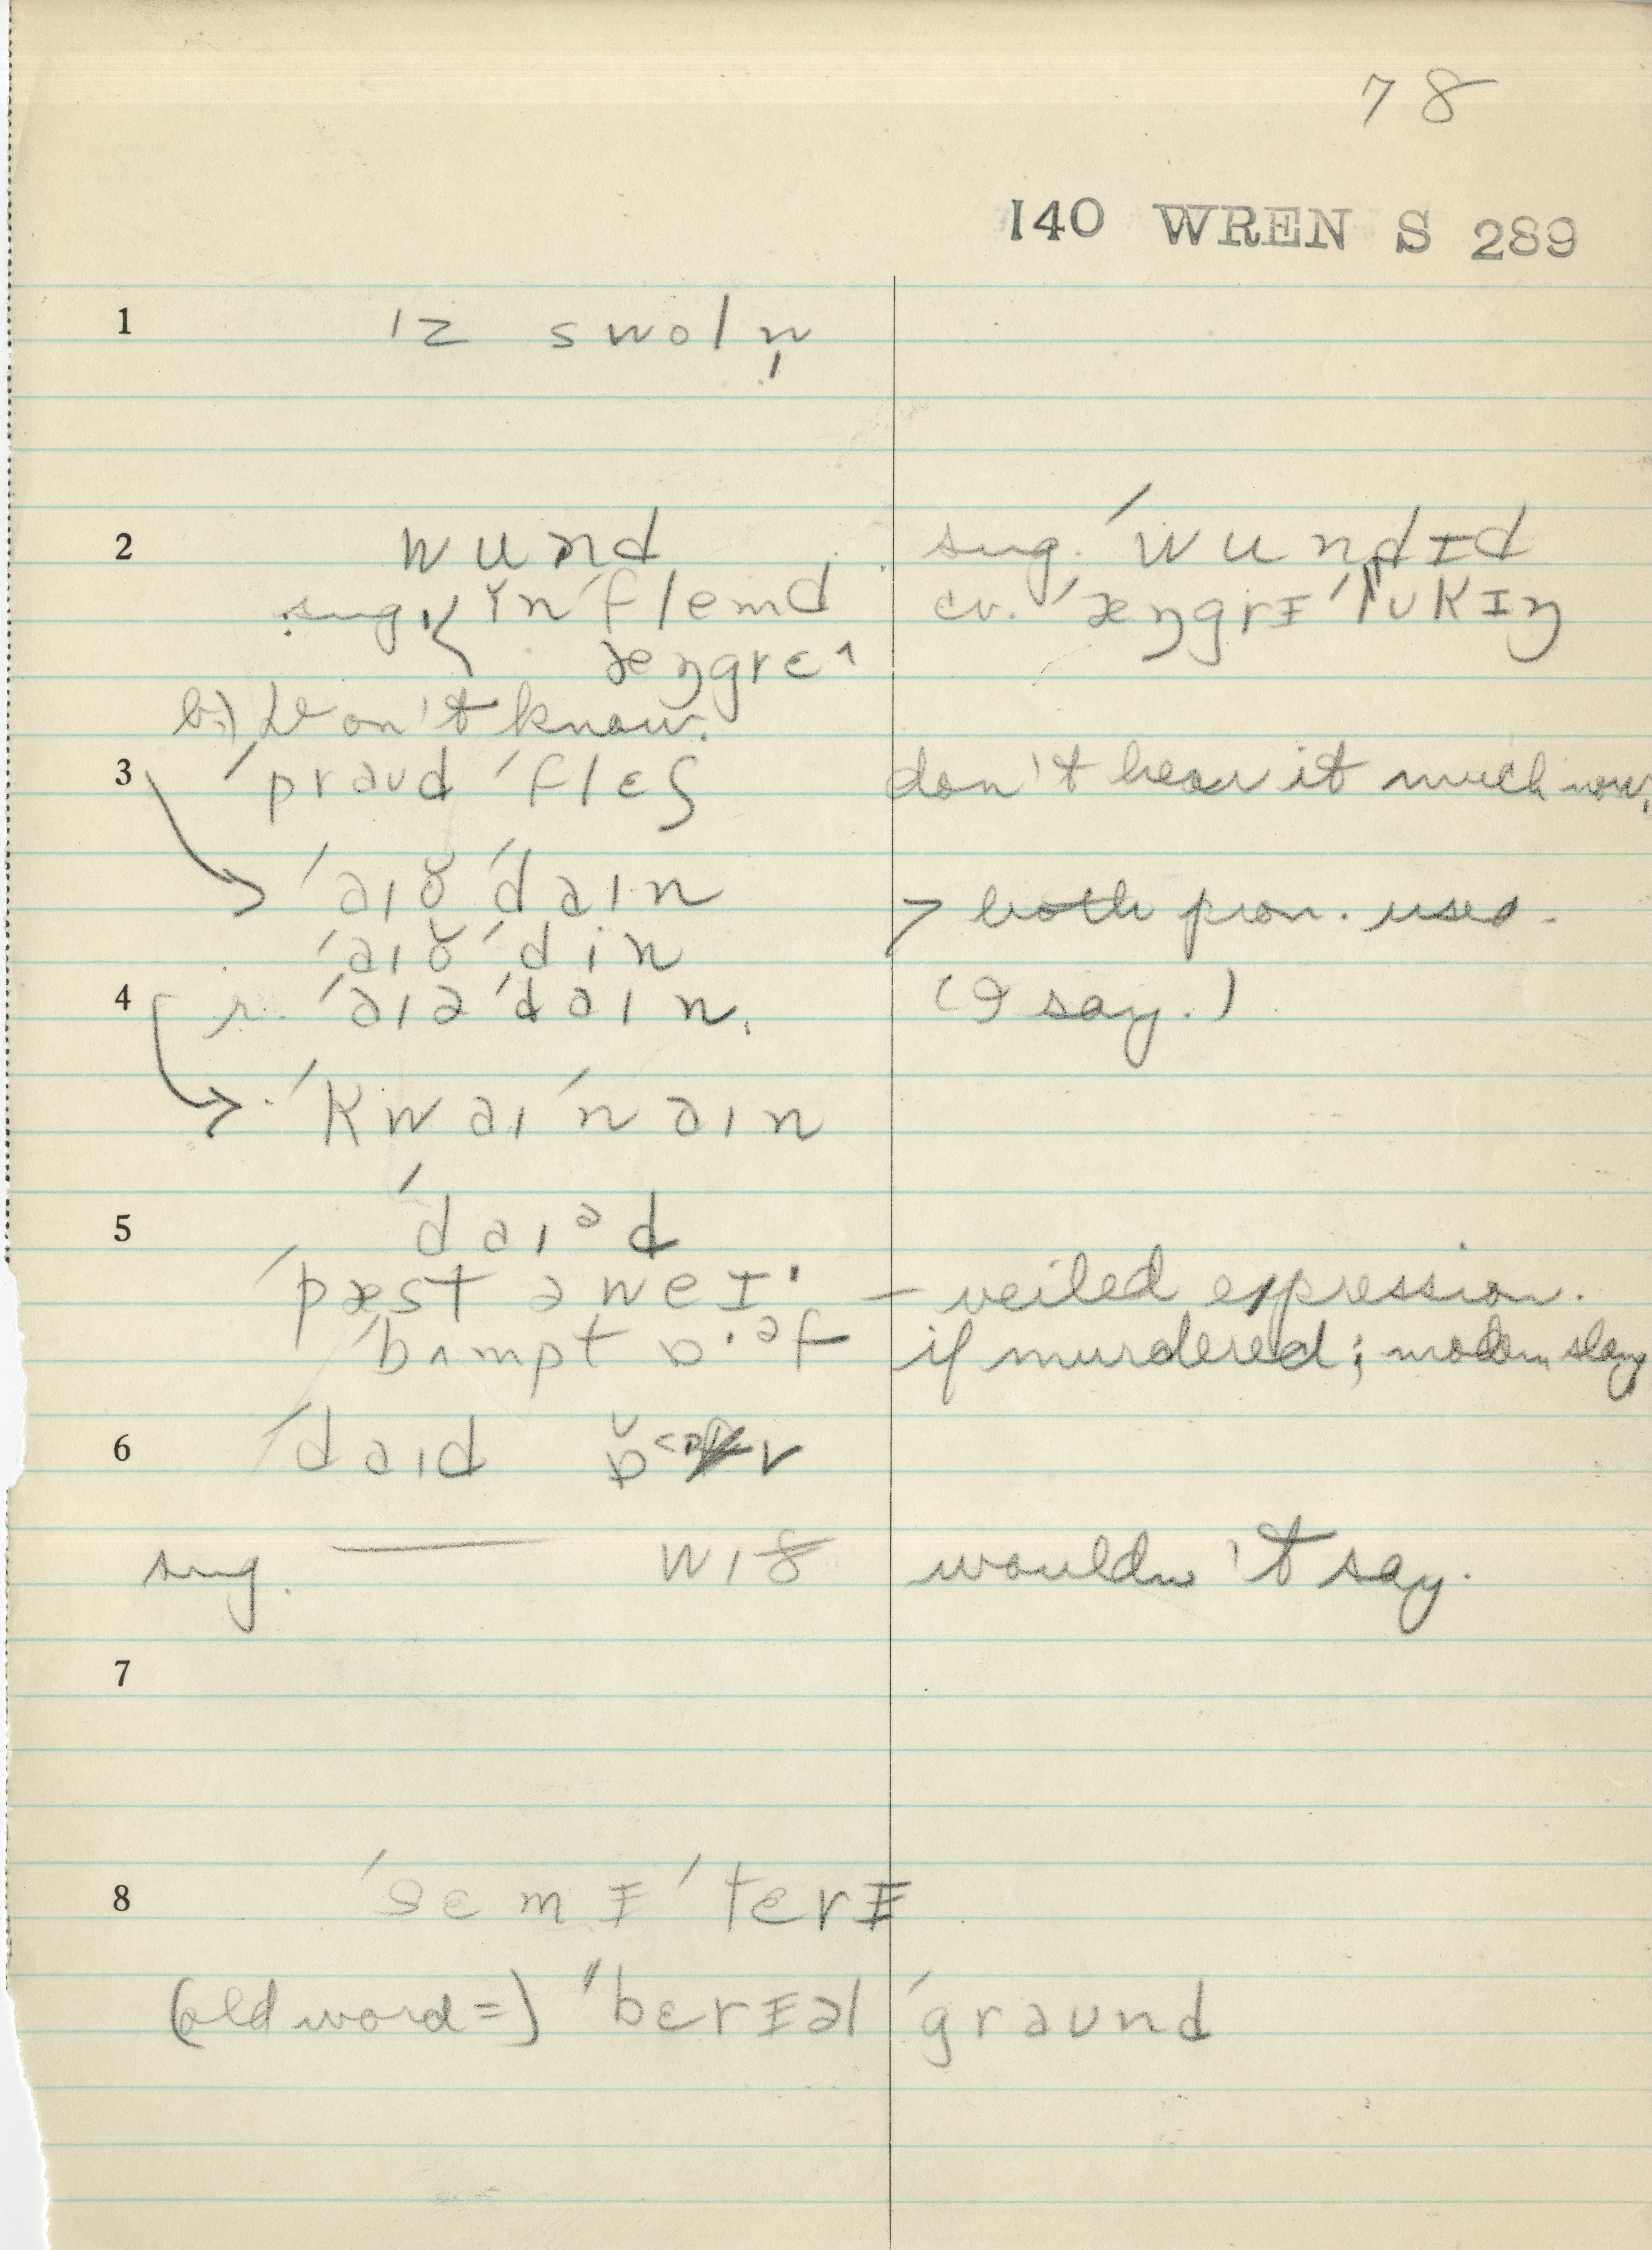 78
140 WREN S 289
1 ɪz swoln̩
2 wund sug. ˈwundɪd
sug. ĭnˈflemd cv. ˈæŋgrɪ ˈlʊkɪŋ
æŋgrɛ˄
b.) Don't know.
3 ˈpraʊd ˈflɛʃ don't hear it much now.
ˈaɪə̆ ˈdaɪn > both pron. used.
ˈaɪə̆ ˈdin
4 r. ˈaɪə ˈdaɪn. (I say.)
ˈkwaɪ ˈnaɪn
5 ˈdaɪᵊd
ˈpæst əweɪ· – veiled expression.
ˈbʌmpt ɒ·ᵊf – if murdered; modern slang
6 ˈdaɪd ɒ̆v
sug. —— wɪð wouldn't say.
7
8 ˈsɛmɪˈtɛrɪ
(old word =) "bɛrɪəl ˈgraʊnd